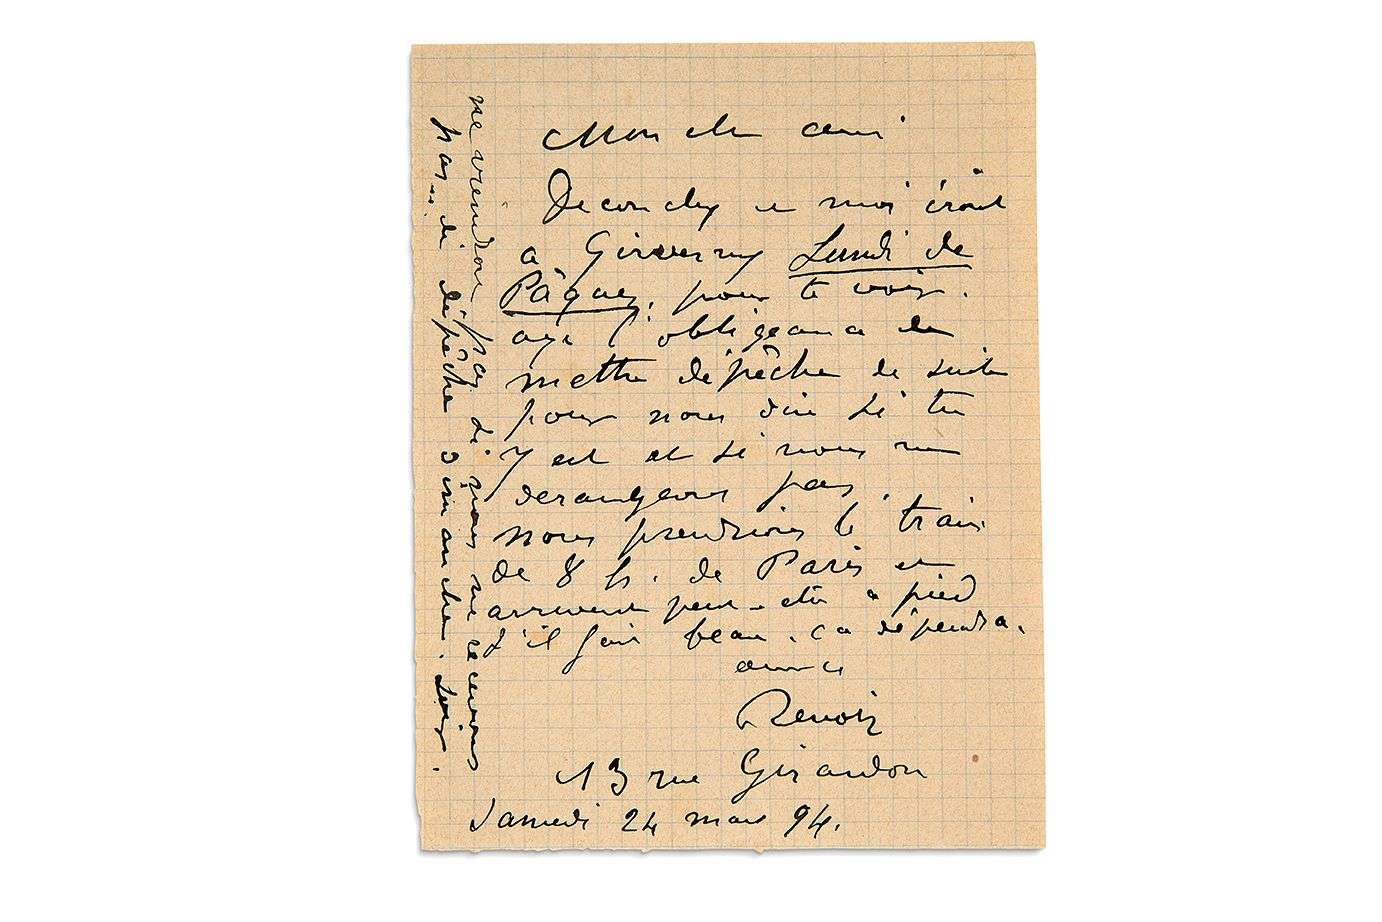 Mon cher ami
Deconchy et moi iront
a Giverny Lundi de
Pâques, pour te voir.
aye l'obligeance de
mettre dépêche de suite
pour nous dire si tu
y est et si nous ne
derangeons pas
nous prendrions le train
de 8 h. de Paris et
arriverons peut-etre a pied
s'il fait beau. ca dépendra.
amicc
Renoir
13 rue Girardon
Samedi 24 mars 94.
ne viendrons pas si nous ne recevions
pas... de dépêche dimanche. soir.